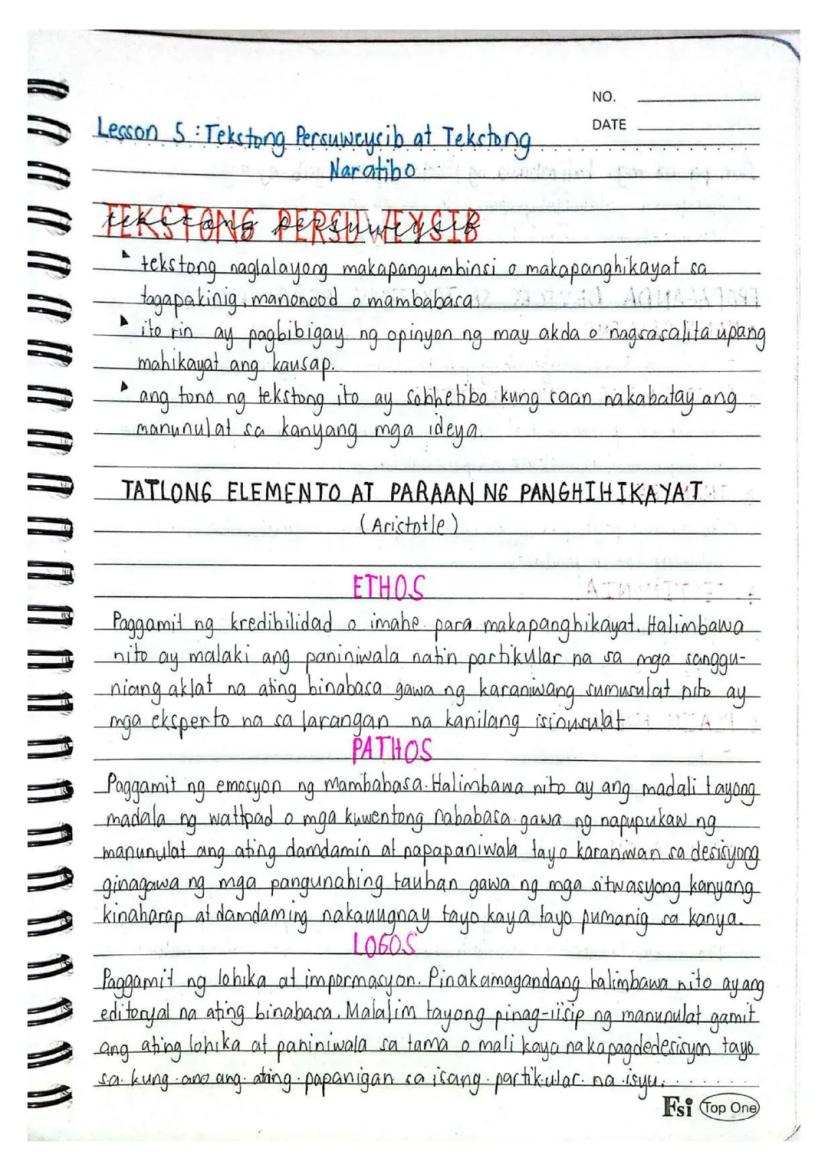 NO.
DATE
Lesson 5 : Tekstong Persuweysib at Tekstong
Naratibo
TEKSTONG PERSUWEYSIB
tekstong persuweysib
tekstong naglalayong makapangumbinsi o makapanghikayat sa
tagapakinig, manonood o mambabasa.
ito rin ay pagbibigay ng opinyon ng may akda o nagsasalita upang
mahikayat ang kausap.
ang tono ng tekstong ito ay sobhetibo kung saan nakabatay ang
manunulat sa kanyang mga ideya.
TATLONG ELEMENTO AT PARAAN NG PANGHIHIKAYAT
(Aristotle)
ETHOS
Paggamit ng kredibilidad o imahe para makapanghikayat. Halimbawa
nito ay malaki ang paniniwala natin partikular na sa mga sanggu-
niang aklat na ating binabasa gawa ng karaniwang sumusulat nito ay
mga eksperto na sa larangan na kanilang isinusulat
PATHOS
Paggamit ng emosyon ng Mambabasa. Halimbawa nito ay ang madali tayong
madala ng wattpad o mga kuwentong nababasa gawa ng napupukaw ng
manunulat ang ating damdamin at napapaniwala tayo karaniwan sa desisyong
ginagawa ng mga pangunahing tauhan gawa ng mga sitwasyong kanyang
kinaharap at damdaming nakauugnay tayo kaya tayo pumanig sa kanya.
LOGOS
Paggamit ng lohika at impormasyon. Pinakamagandang halimbawa nito ay ang
editoryal na ating binabasa. Malalim tayong pinag-iisip ng manunulat gamit
ang ating lohika at paniniwala sa tama o mali kaya nakapagdedesisyon tayo
sa kung ano ang ating papanigan sa isang partikular na isyu.
Fsi Top One